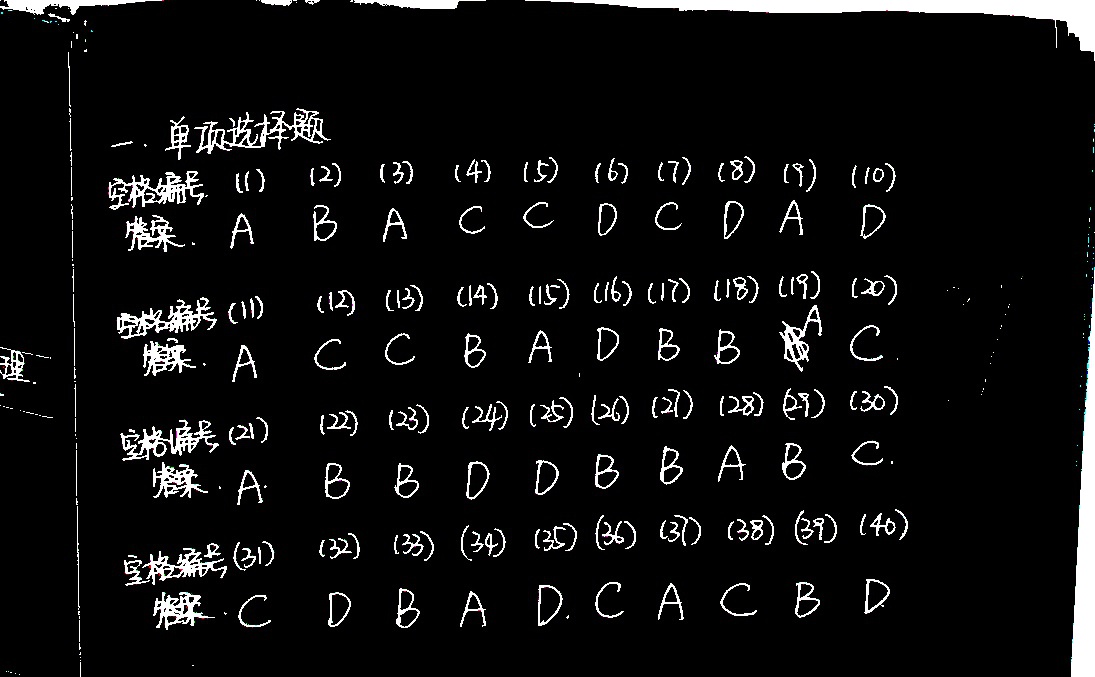 一.单项选择题
空格编号 (1) (2) (3) (4) (5) (6) (7) (8) (9) (10)
答案. A B A C C D C D A D
空格编号 (11) (12) (13) (14) (15) (16) (17) (18) (19) (20)
答案. A C C B A D B B A C.
空格编号 (21) (22) (23) (24) (25) (26) (27) (28) (29) (30)
答案. A. B B D D B B A B C.
空格编号 (31) (32) (33) (34) (35) (36) (37) (38) (39) (40)
答案. C D B A D. C A C B D
理.